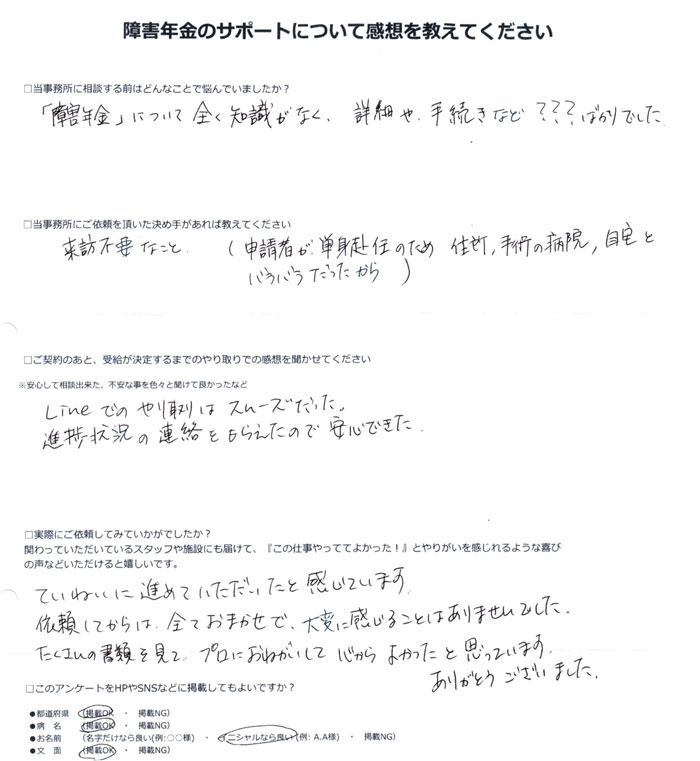 障害年金のサポートについて感想を教えてください
□当事務所に相談する前はどんなことで悩んでいましたか？
「障害年金」について全く知識がなく、詳細や、手続きなど？？？ばかりでした
□当事務所にご依頼を頂いた決め手があれば教えてください
来訪不要なこと、（申請者が単身赴任のため 住所,手術の病院,自宅と
バラバラだったから）
□ご契約のあと、受給が決定するまでのやり取りでの感想を聞かせてください
※安心して相談出来た、不安な事を色々と聞けて良かったなど
Lineでのやり取りはスムーズだった。
進捗状況の連絡をもらえたので安心できた。
□実際にご依頼してみていかがでしたか？
関わっていただいているスタッフや施設にも届けて、『この仕事やっててよかった！』とやりがいを感じれるような喜び
の声などいただけると嬉しいです。
ていねいに進めていただいたと感じています。
依頼してからは、全ておまかせで、大変に感じることはありませんでした。
たくさんの書類を見て、プロにおねがいして心からよかったと思っています。
ありがとうございました。
□このアンケートをHPやSNSなどに掲載してもよいですか？
●都道府県 （掲載OK ・ 掲載NG）
●病 名 （掲載OK ・ 掲載NG）
●お名前 （名字だけなら良い(例:○○様) ・ イニシャルなら良い(例: A.A様) ・ 掲載NG）
●文 面 （掲載OK ・ 掲載NG）